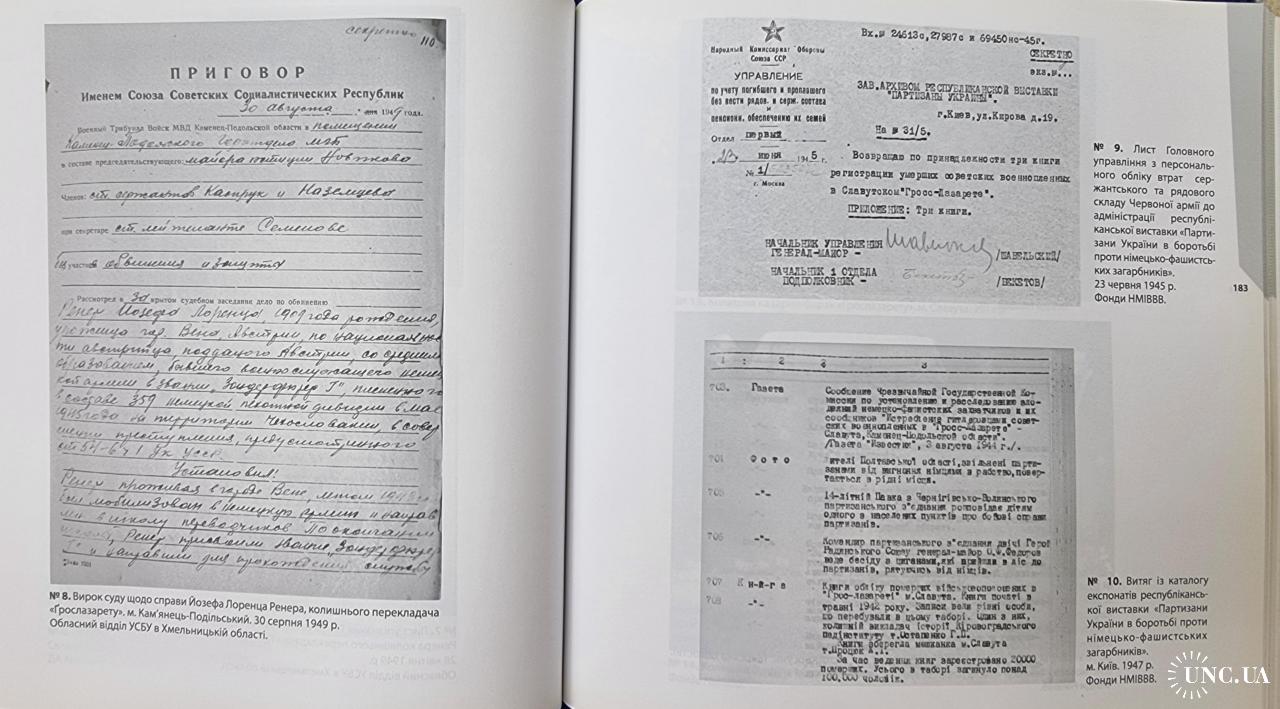 секретно
110
ПРИГОВОР
Именем Союза Советских Социалистических Республик
30 августа дня 1949 года.
Военный Трибунал Войск МВД Каменец-Подольской области в помещении
Каменец-Подольского МГБ
в составе председательствующего: майора юстиции
Членов: ст. сержантов Капрук и Наземцева
при секретаре ст. лейтенанте Семенове
без участия обвинения и защиты
Рассмотрел в закрытом судебном заседании дело по обвинению
Ренер Йозефа Лоренца 1909 года рождения,
уроженца гор. Вена, Австрии, по национальнос-
ти австрийца, подданого Австрии, со средним
образованием, бывшего военнослужащего немец-
кой армии в звании "Зондерфюрер Г" плененного
в составе 359 немецкой пехотной дивизии в мае
1945 года на территории Чехословакии, в совер-
шении преступления, предусмотренного
ст. 54-6 ч 1 УК УССР.
Установил:
Ренер проживая в городе Вене, летом
был мобилизован в немецкую армию и направ-
лен в школу переводчиков. По окончании
школы, Ренер присвоили звание "Зондерфюрер
Г" и направили для прохождения службы
№ 8. Вирок суду щодо справи Йозефа Лоренца Ренера, колишнього перекладача
«Ґрослазарету». м. Кам'янець-Подільський. 30 серпня 1949 р.
Обласний відділ УСБУ в Хмельницькій області.
Народный Комиссариат Обороны
Союза ССР
УПРАВЛЕНИЕ
по учету погибшего и пропавшего
без вести рядов. и серж. состава
и
пенсионн. обеспечению их семей
Отдел первый
23 июня 1945 г.
№ 1/
г. Москва
Вх.№ 24613с,27987с и 69450нс-45г.
СЕКРЕТНО
экз.№...
ЗАВ.АРХИВОМ РЕСПУБЛИКАНСКОЙ ВЫСТАВКИ
"ПАРТИЗАНЫ УКРАИНЫ".
г.Киев,ул.Кирова д.19.
На № 31/5.
Возвращаю по принадлежности три книги
регистрации умерших советских военнопленных
в Славутском"Гросс-Лазарете".
ПРИЛОЖЕНИЕ: Три книги.
НАЧАЛЬНИК УПРАВЛЕНИЯ
ГЕНЕРАЛ-МАЙОР - /ШАВЕЛЬСКИЙ/
НАЧАЛЬНИК 1 ОТДЕЛА
ПОДПОЛКОВНИК - /БЕКЕТОВ/
№ 9. Лист Головного
управління з персональ-
ного обліку втрат сер-
жантського та рядового
складу Червоної армії до
адміністрації республі-
канської виставки «Парти-
зани України в боротьбі
проти німецько-фашистсь-
ких загарбників».
23 червня 1945 р.
Фонди НМІВВВ.
183
1 : 2 : 3
703. Газета Сообщение Чрезвычайной Государственной Ко-
миссии по установлению и расследованию зло-
деяний немецко-фашистских захватчиков и их
сообщников "Истребление гитлеровцами совет-
ских военнопленных в "Гросс-Лазарете"
Славута,Каменец-Подольской области".
/Газета "Известия", 3 августа 1944 г./.
704 Фото Жителі Полтавської області,звільнені парти-
занами від вигнання німцями в рабство,повер-
тається в рідні місця.
705 -"- 14-літній Павка з Чернігівсько-Волинського
партизанського з'єднання розповідає дітям
одного з населених пунктів про бойові справи
партизанів.
706 -"- Командир партизанського з'єднання двічі Герой
Радянського Союзу генерал-майор О.Ф.Федоров
веде бесіду з циганами,які прийшли в ліс до
партизанів, рятуючись від німців.
707 Книга Книги обліку померлих військовополонених в
708 -"- "Грос-лазареті" м.Славута. Книги початі в
травні 1942 року. Записи вели різні особи,
що перебували в цьому таборі. Один з них,
колишній викладач історії Кіровоградського
педінституту т.Остапенко Г.П.
Книги зберегла мешканка м.Славута
т.Процюк А.І.
За час ведення книг зареєстровано 20000
померших. Усього в таборі загинуло понад
100,000 чоловік.
№ 10. Витяг із каталогу
експонатів республікансь-
кої виставки «Партизани
України в боротьбі проти
німецько-фашистських
загарбників».
м. Київ. 1947 р.
Фонди НМІВВВ.
UNC.UA